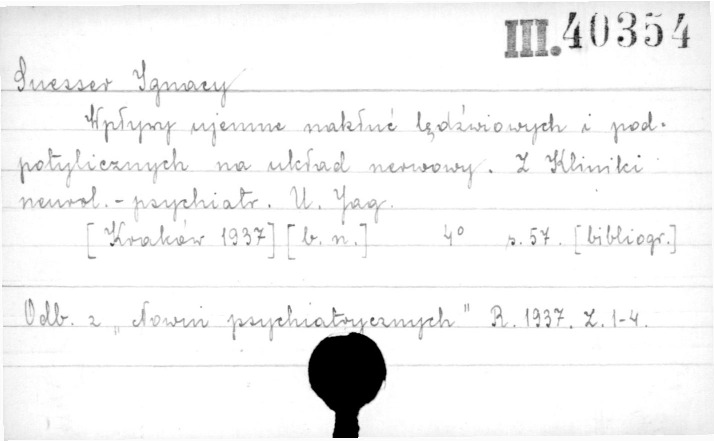 III. 40354
Suesser Ignacy
Wpływy ujemne nakłuć lędźwiowych i pod-
potylicznych na układ nerwowy. Z Kliniki
neurol. - psychiatr. U. Jag.
[Kraków 1937] [b. n.] 4° s. 57. [bibliogr.]
Odb. z „Nowin psychiatrycznych" R. 1937. Z. 1-4.